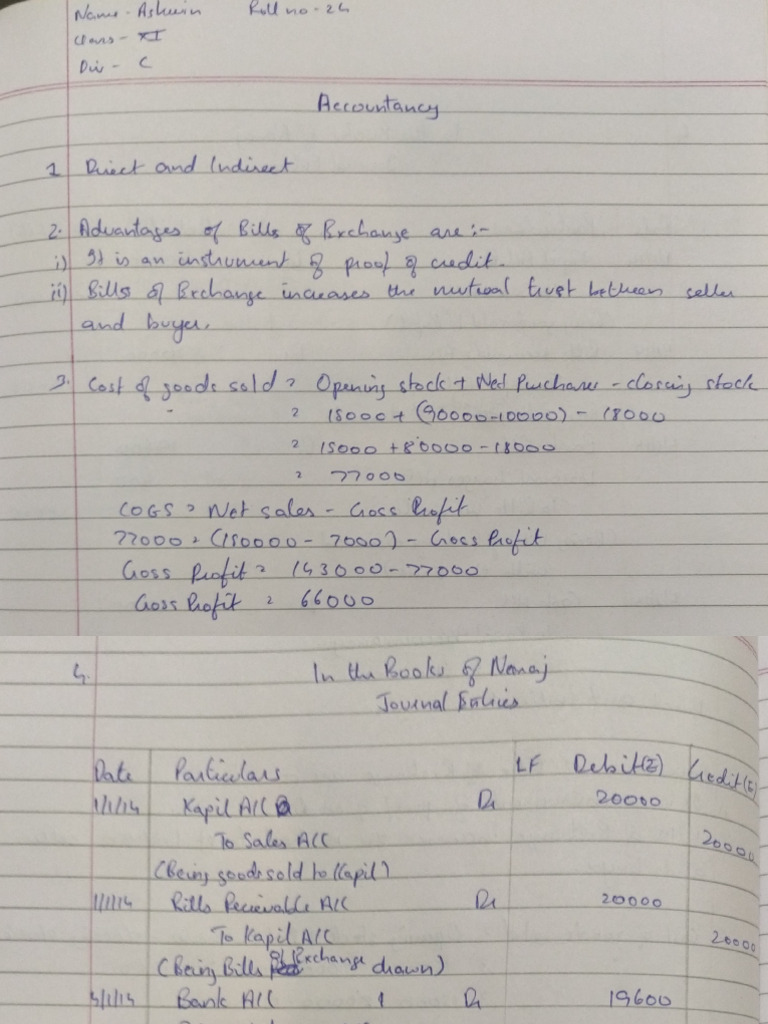 Name - Ashwin Roll no - 24
Class - XI
Div - C
Accountancy
1 Direct and Indirect
2. Advantages of Bills of Exchange are :-
i) It is an instrument of proof of credit.
ii) Bills of Exchange increases the mutual trust between seller
and buyer.
3. Cost of goods sold = Opening stock + Net Purchases - closing stock
= 15000 + (90000-10000) - 18000
= 15000 + 80000 - 18000
= 77000
COGS = Net sales - Gross Profit
77000 = (150000 - 7000) - Gross Profit
Gross Profit = 143000 - 77000
Gross Profit = 66000
4. In the Books of
Journal Entries
Date Particulars LF Debit(₹) Credit(₹)
1/1/14 Kapil A/C Dr 20000
To Sales A/C 20000
(Being goods sold to Kapil)
1/1/14 Bills Recievable A/C Dr 20000
To Kapil A/C 20000
(Being Bills of Exchange drawn)
Bank A/C Dr 19600